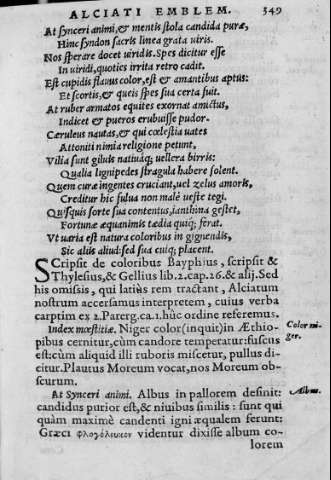 ALCIATI EMBLEM. 349
At synceri animi, & mentis stola candida puræ,
Hinc syndon sacris linea grata uiris.
Nos sperare docet uiridis. Spes dicitur esse
In uiridi, quoties irrita retro cadit.
Est cupidis flauus color, est & amantibus aptus:
Et scortis, & queis spes sua certa fuit.
At ruber armatos equites exornat amictus,
Indicet & pueros erubuisse pudor.
Cæruleus nautas, & qui cœlestia uates
Attoniti nimia religione petunt,
Vilia sunt giluis natiuaq; uellera birris:
Qualia lignipedes stragula habere solent.
Quem curæ ingentes cruciant, uel zelus amoris,
Creditur hic fulua non malè ueste tegi.
Quisquis sorte sua contentus, ianthina gestet,
Fortunæ æquanimis tædia quiq; ferat.
Vt uaria est natura coloribus in gignendis,
Sic aliis aliud: sed sua cuiq; placent.
SCripsit de coloribus Bayphius, scripsit &
Thylesius, & Gellius lib. 2. cap. 26. & alij. Sed
his omissis, qui latiùs rem tractant, Alciatum
nostrum accersamus interpretem, cuius verba
carptim ex 2. Parerg. ca. 1. hûc ordine referemus.
Index mœstitiæ. Niger color (inquit) in Æthio-
Color ni-
pibus cernitur, cùm candore temperatur: fuscus
ger.
est: cùm aliquid illi ruboris miscetur, pullus di-
citur. Plautus Moreum vocat, nos Moreum ob-
scurum.
At Synceri animi. Albus in pallorem desinit:
Albus.
candidus purior est, & niuibus similis: sunt qui
quàm maximè candenti igni æqualem ferunt:
Græci φλογόλευκον videntur dixisse album co-
lorem